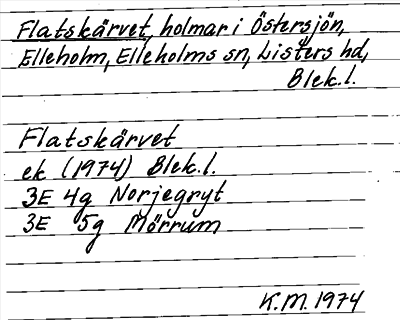 Flatskärvet, holmar i Östersjön,
Elleholm, Elleholms sn, Listers hd,
Blek.l.
Flatskärvet
ek (1974) Blek.l.
3E 4g Norjegryt
3E 5g Mörrum
K.M. 1974